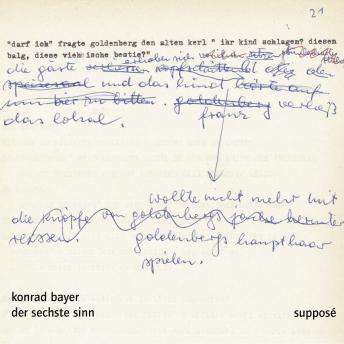 21
"darf ich" fragte goldenberg den alten kerl " ihr kind schlagen? diesem
balg, diese viehische bestie?"
die gäste
und das kind
um bier zu bitten. goldenberg verließ
das lokal. franz
wollte nicht mehr mit
die knöpfe von goldenbergs jacke herunter
reissen. goldenbergs haupthaar
spielen.
konrad bayer
der sechste sinn
supposé